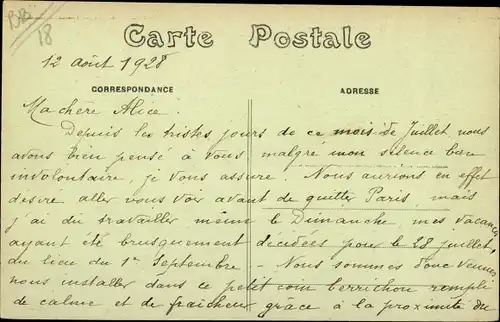 BB
18
Carte Postale
12 août 1928
CORRESPONDANCE
ADRESSE
Ma chère Alice.
Depuis les tristes jours de ce mois de Juillet, nous
avons bien pensé à vous, malgré mon silence bien
involontaire, je vous assure. Nous aurions en effet
désiré aller vous voir avant de quitter Paris, mais
j'ai dû travailler même le Dimanche, mes vacances
ayant été brusquement décidées pour le 28 juillet,
au lieu du 1er Septembre. Nous sommes donc venues
nous installer dans ce petit coin berrichon rempli
de calme et de fraîcheur grâce à la proximité du